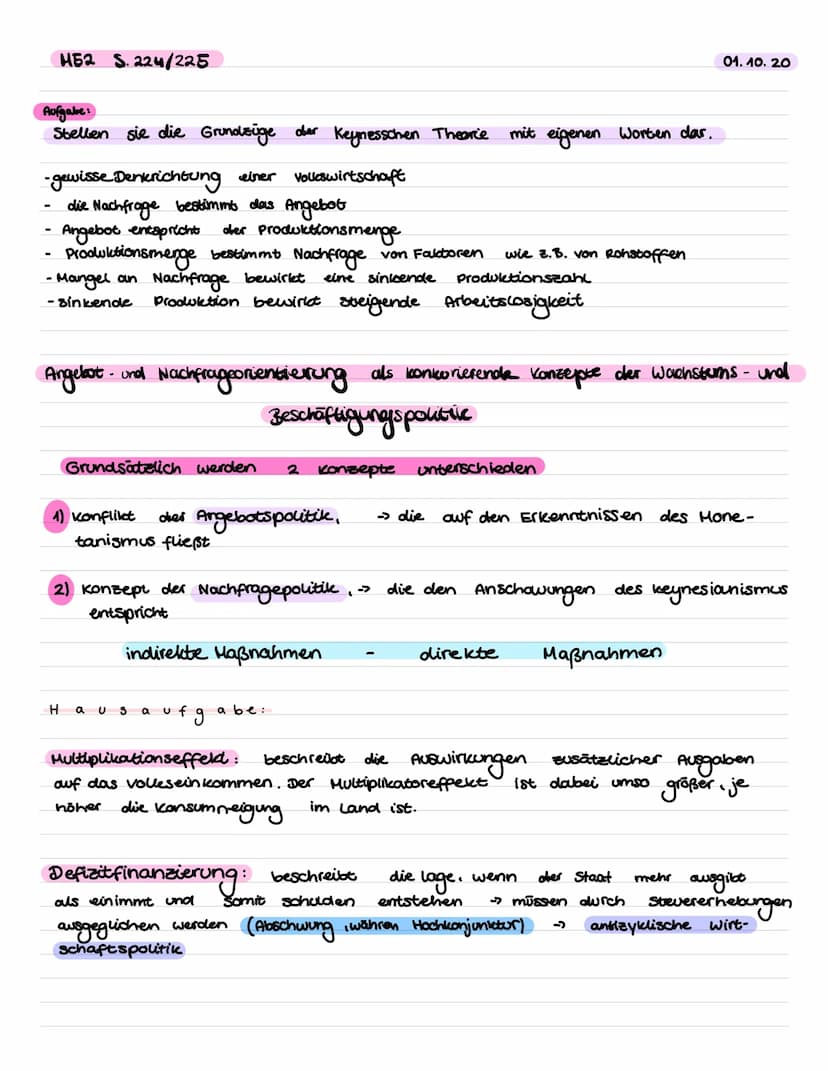 M52 S. 224/225
01.10.20
Aufgabe:
Stellen sie die Grundzüge der Keynesschen Theorie mit eigenen Worten dar.
- gewisse Denkrichtung einer Volkswirtschaft
- die Nachfrage bestimmt das Angebot
- Angebot entspricht der Produktionsmenge
- Produktionsmenge bestimmt Nachfrage von Faktoren wie z.B. von Rohstoffen
- Mangel an Nachfrage bewirkt eine sinkende Produktionszahl
- sinkende Produktion bewirkt steigende Arbeitslosigkeit
Angebot- und Nachfrageorientierung als konkurierende Konzepte der Wachstums- und
Beschäftigungspolitik
Grundsätzlich werden 2 Konzepte unterschieden
1) Konflikt der Angebotspolitik, -> die auf den Erkenntnissen des Mone-
tarismus fließt
2) Konzept der Nachfragepolitik, -> die den Anschauungen des Keynesianismus
entspricht
indirekte Maßnahmen - direkte Maßnahmen
Hausaufgabe:
Multiplikationseffekt: beschreibt die Auswirkungen zusätzlicher Ausgaben
auf das Volkseinkommen. Der Multiplikatoreffekt ist dabei umso größer, je
höher die Konsumneigung im Land ist.
Defizitfinanzierung: beschreibt die Lage, wenn der Staat mehr ausgibt
als einimmt und somit schulden entstehen -> müssen durch Steuererhebungen
ausgeglichen werden (Abschwung, währen Hochkonjunktur) -> antizyklische Wirt-
schaftspolitik